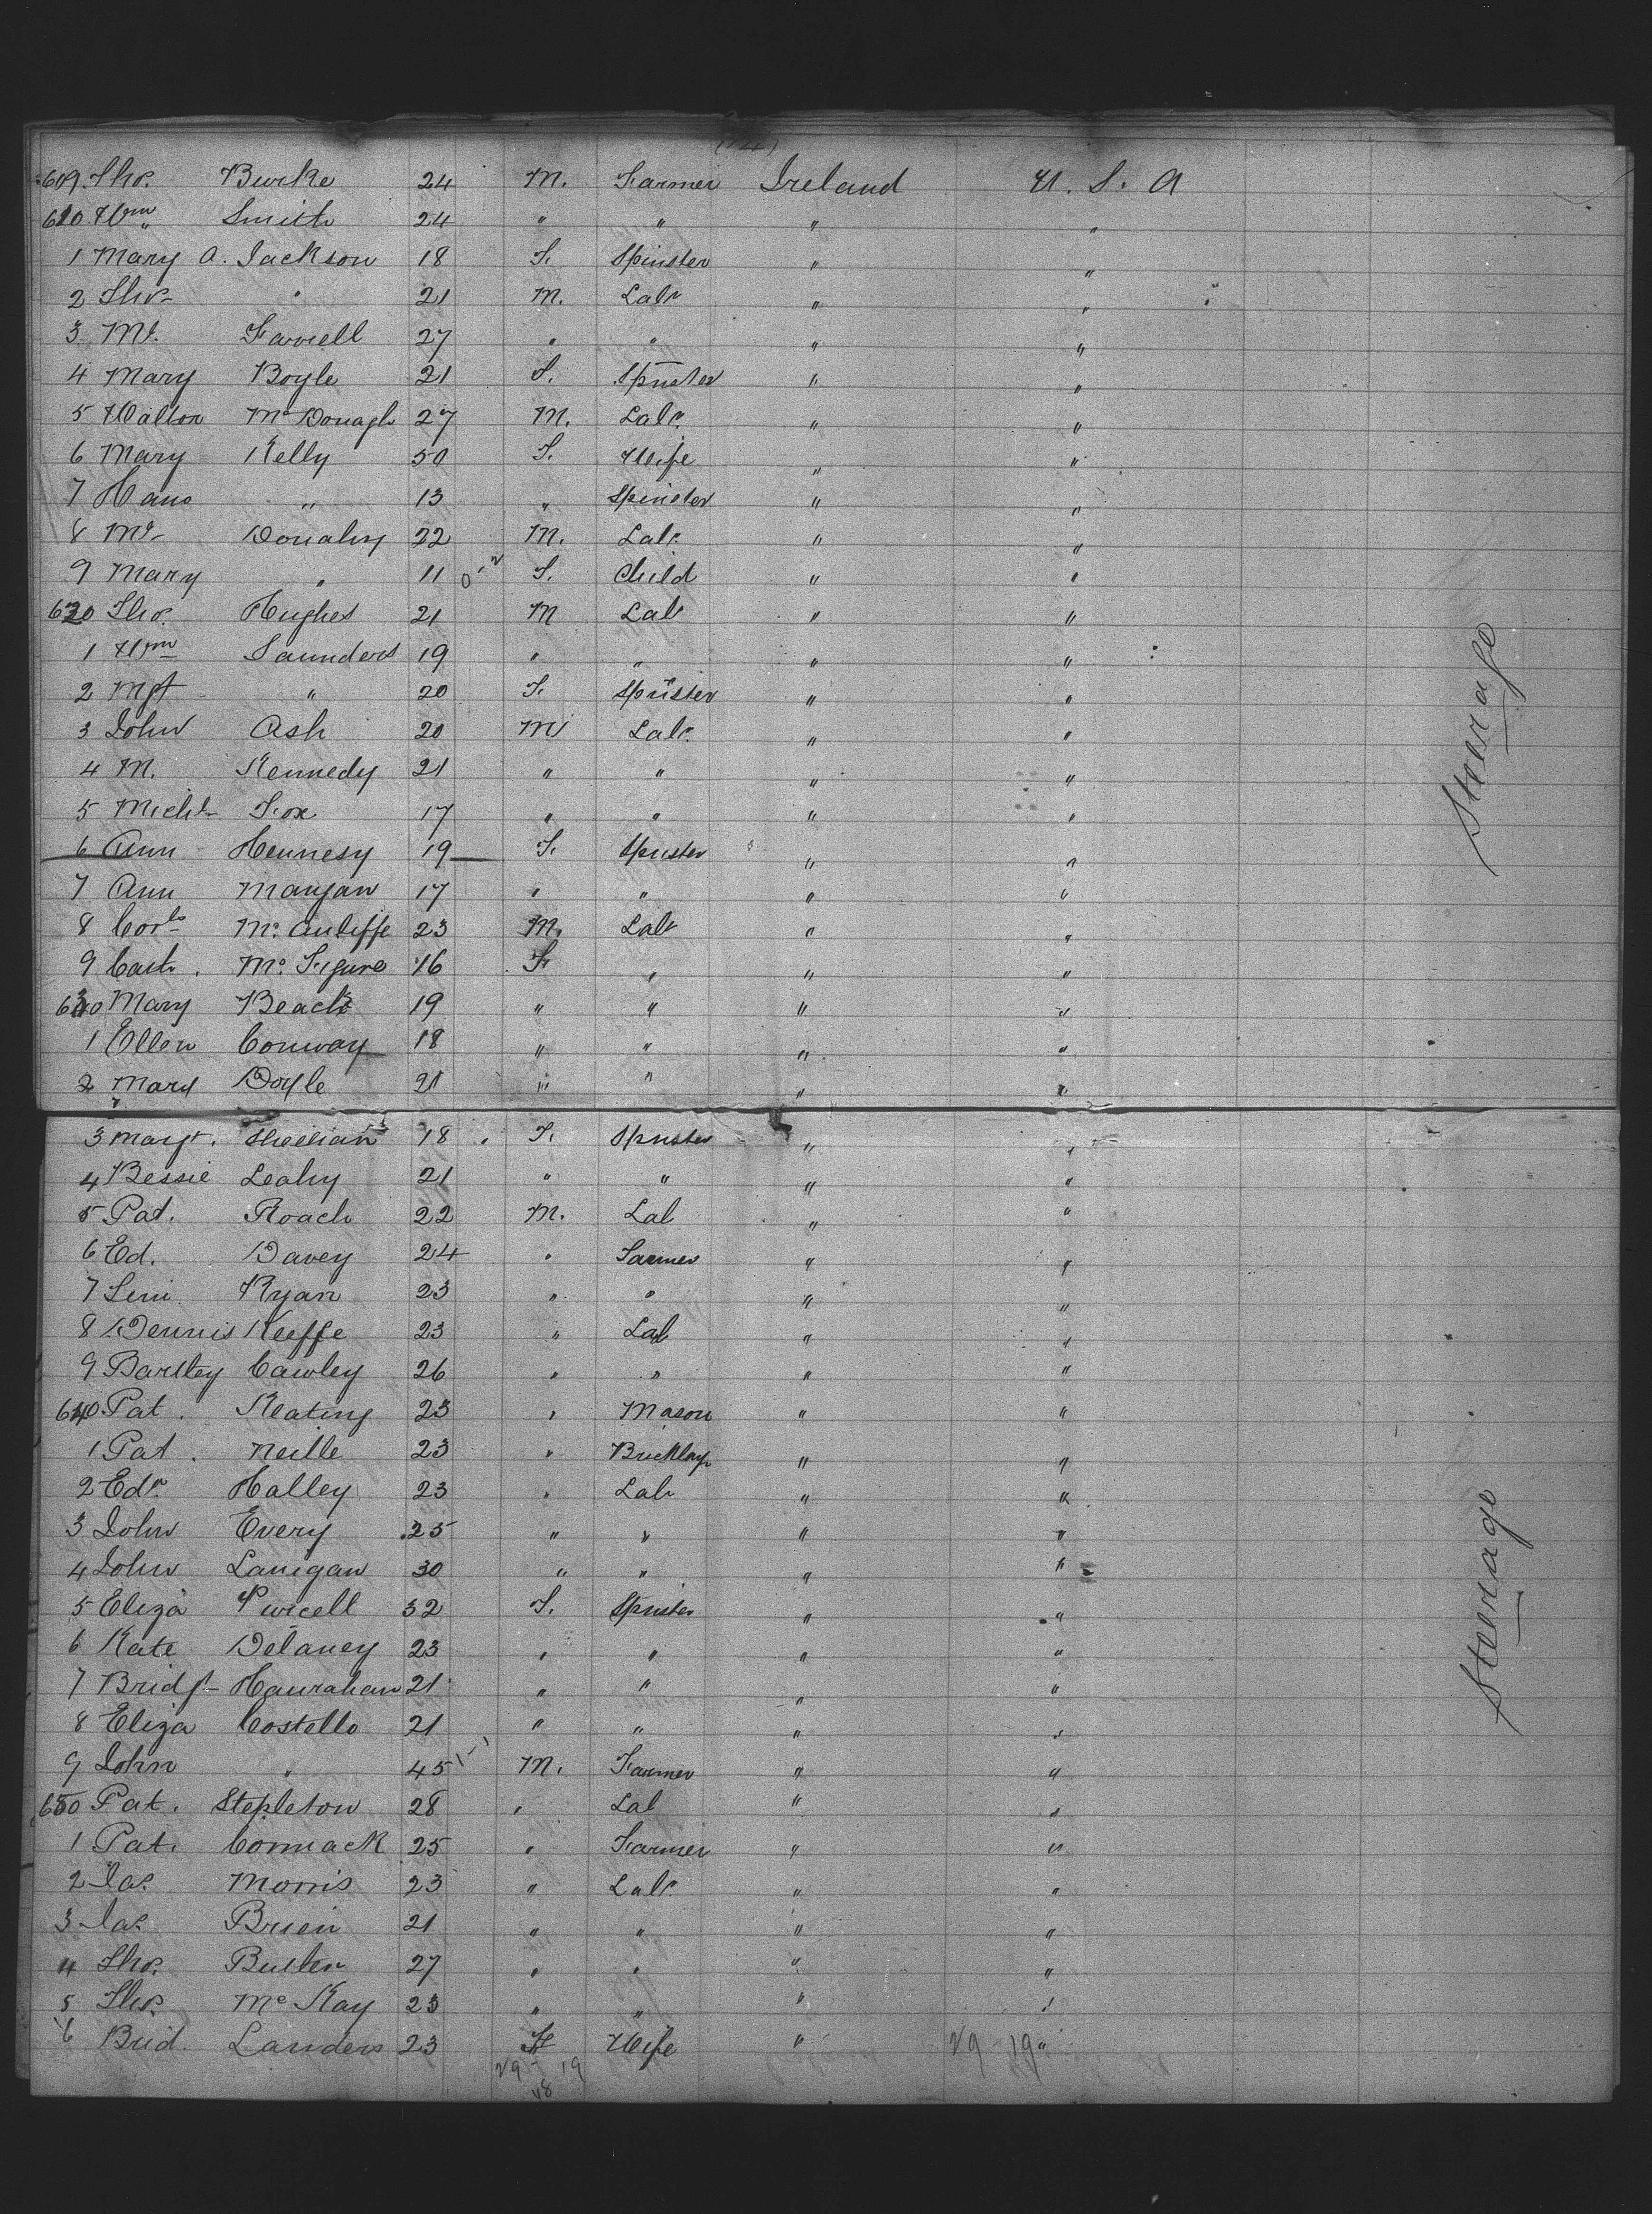 (14)
609. Thos. Burke 24 M. Farmer Ireland U. S. A
610 Wm Smith 24 " " " "
1 Mary A. Jackson 18 F. Spinster " "
2 Thos " 21 M. Labr " "
3 Ml. Farrell 27 " " " "
4 Mary Boyle 21 F. Spinster " "
5 Walter McDonagh 27 M. Labr. " "
6 Mary Kelly 50 F. Wife " "
7 Hano " 13 " Spinster " "
8 Ml. Donahy 22 M. Labr. " "
9 Mary " 11 F. Child " "
620 Thos. Hughes 21 M Lab " "
1 Wm Saunders 19 " " " "
2 Mgt " 20 F. Spinster " "
3 John Ash 20 M Labr. " "
4 M. Kennedy 21 " " " "
5 Michl Fox 17 " " " "
6 Ann Hennesy 19 F. Spinster " "
7 Ann Mangan 17 " " " "
8 Corls McAuliffe 23 M. Labr " "
9 Cath. Mc Figure 16 F " " "
630 Mary Beach 19 " " " "
1 Ellen Conway 18 " " " "
2 Mary Doyle 21 " " " "
Steerage
3 Margt. 18 F. Spinster " "
4 Bessie Leahy 21 " " " "
5 Pat. Roach 22 M. Lab " "
6 Ed. Davey 24 " Farmer " "
7 Ryan 23 " " " "
8 Dennis Keeffe 23 " Lab " "
9 Bartley Cawley 26 " " " "
640 Pat. Keating 23 " Mason " "
1 Pat. Neille 23 " Bricklayr " "
2 Edr. Halley 23 " Lab " "
3 John Every 25 " " " "
4 John Lanigan 30 " " " "
5 Eliza Purcell 32 F. Spinster " "
6 Kate Delaney 23 " " " "
7 Bridgt Hanrahan 21 " " " "
8 Eliza Costello 21 " " " "
9 John " 45 M. Farmer " "
650 Pat. Stepleton 28 " Lab " "
1 Pat. Cormack 25 " Farmer " "
2 Jas. Morris 23 " Labr. " "
3 Jas. Brien 21 " " " "
4 Thos. Butler 27 " " " "
5 Thos. McKay 23 " " " "
6 Brid. Landers 23 F Wife " 29 19 "
29 - 19
48
Steerage